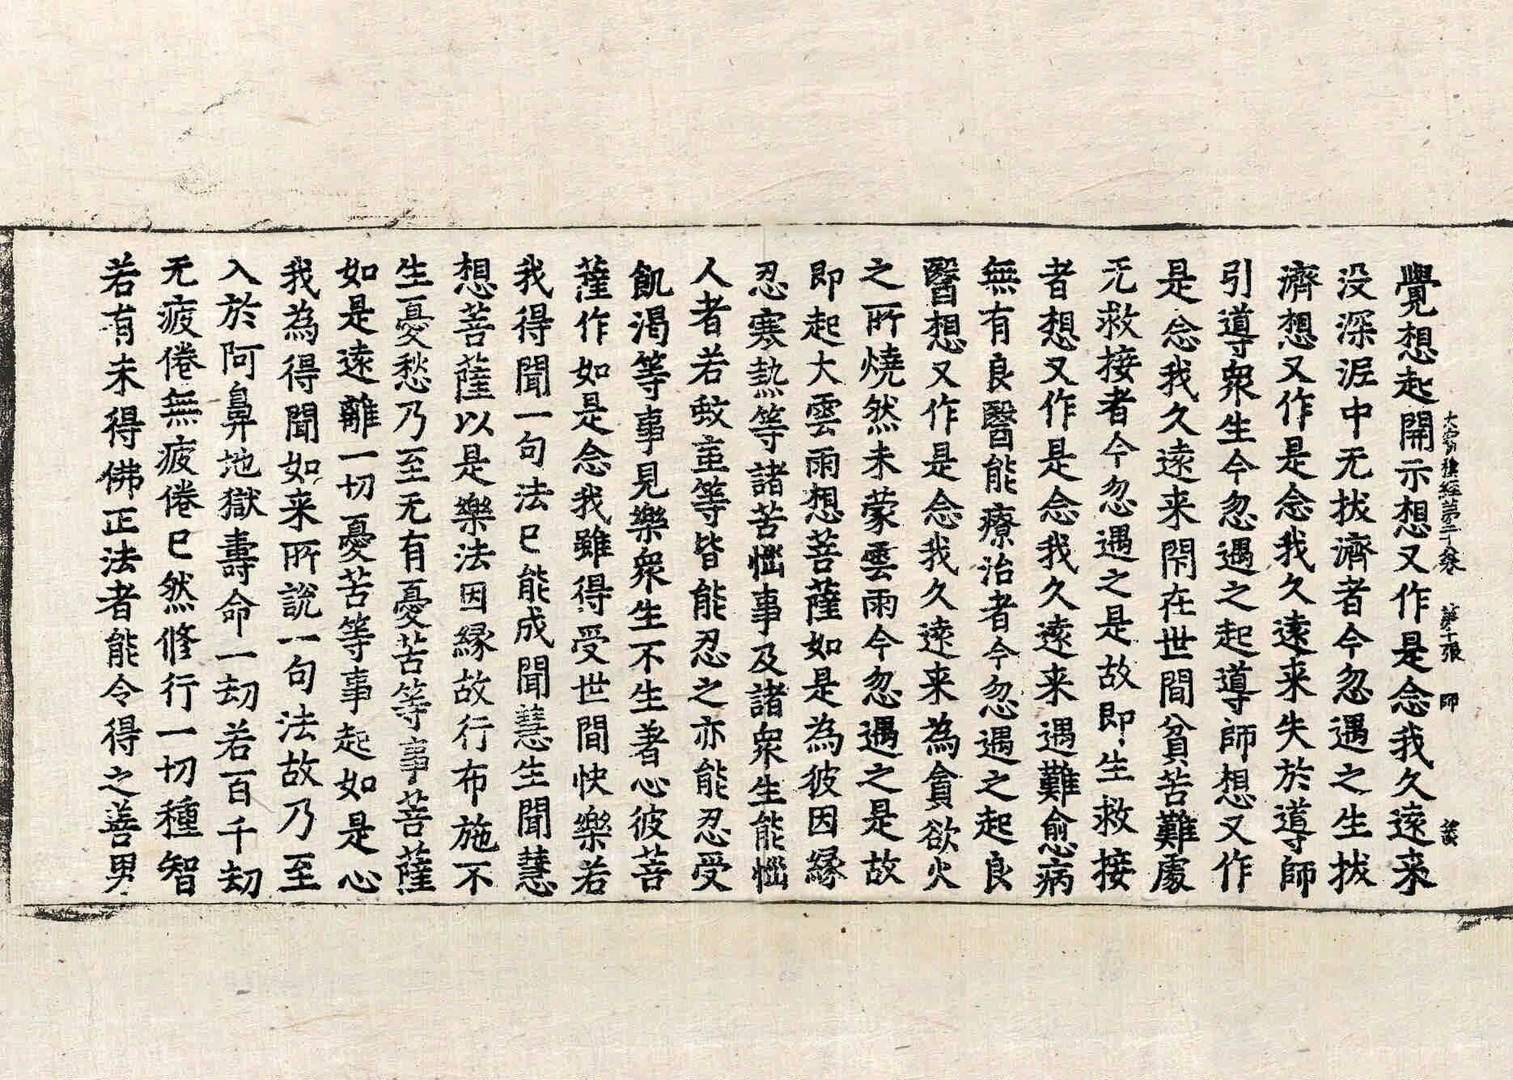 大寳積經第卷 第十張 師
覺想起開示想又作是念我久遠来
没深泥中无拔濟者今忽遇之生拔
濟想又作是念我久遠来失於導師
引導衆生今忽遇之起導師想又作
是念我久遠来閇在世間貧苦難處
无救接者今忽遇之是故即生救接
者想又作是念我久遠来遇難愈病
無有良醫能療治者今忽遇之起良
醫想又作是念我久遠来為貪欲火
之所燒然未蒙雲雨今忽遇之是故
即起大雲雨想菩薩如是為彼因縁
忍寒熱等諸苦惱事及諸衆生能惱
人者若蚊䖟等皆能忍之亦能忍受
飢渴等事見樂衆生不生著心彼菩
薩作如是念我雖得受世間快樂若
我得聞一句法已能成聞慧生聞慧
想菩薩以是樂法因縁故行布施不
生憂愁乃至无有憂苦等事菩薩
如是遠離一切憂苦等事起如是心
我為得聞如来所說一句法故乃至
入於阿鼻地獄壽命一劫若百千劫
无疲倦無疲倦已然修行一切種智
若有未得佛正法者能令得之善男